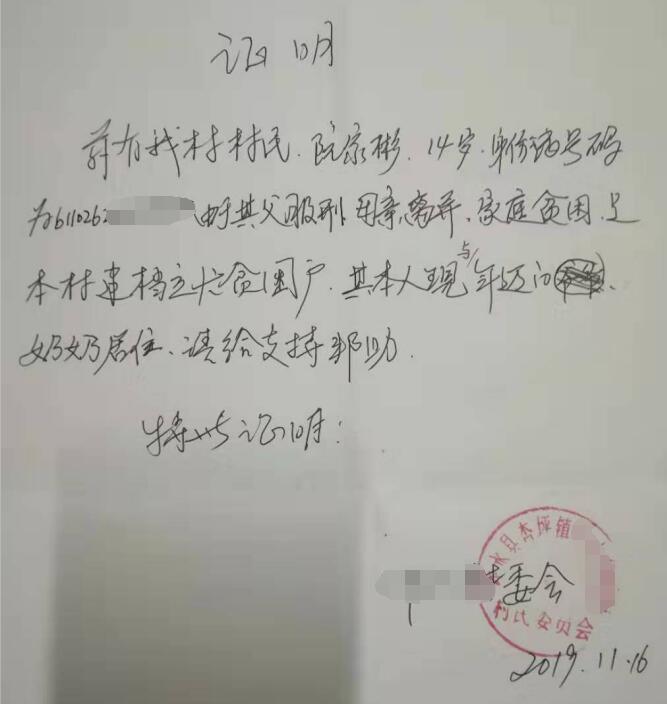 证明
兹有我村村民、阮家彬、14岁、身份证号码
为6110262 由于其父服刑 母亲离异、家庭贫困、是
本村建档立卡贫困户、其本人现与年迈的
奶奶居住、请给支持帮助.
特此证明:
水县杏坪镇
委会
村民委员会
2019.11.16